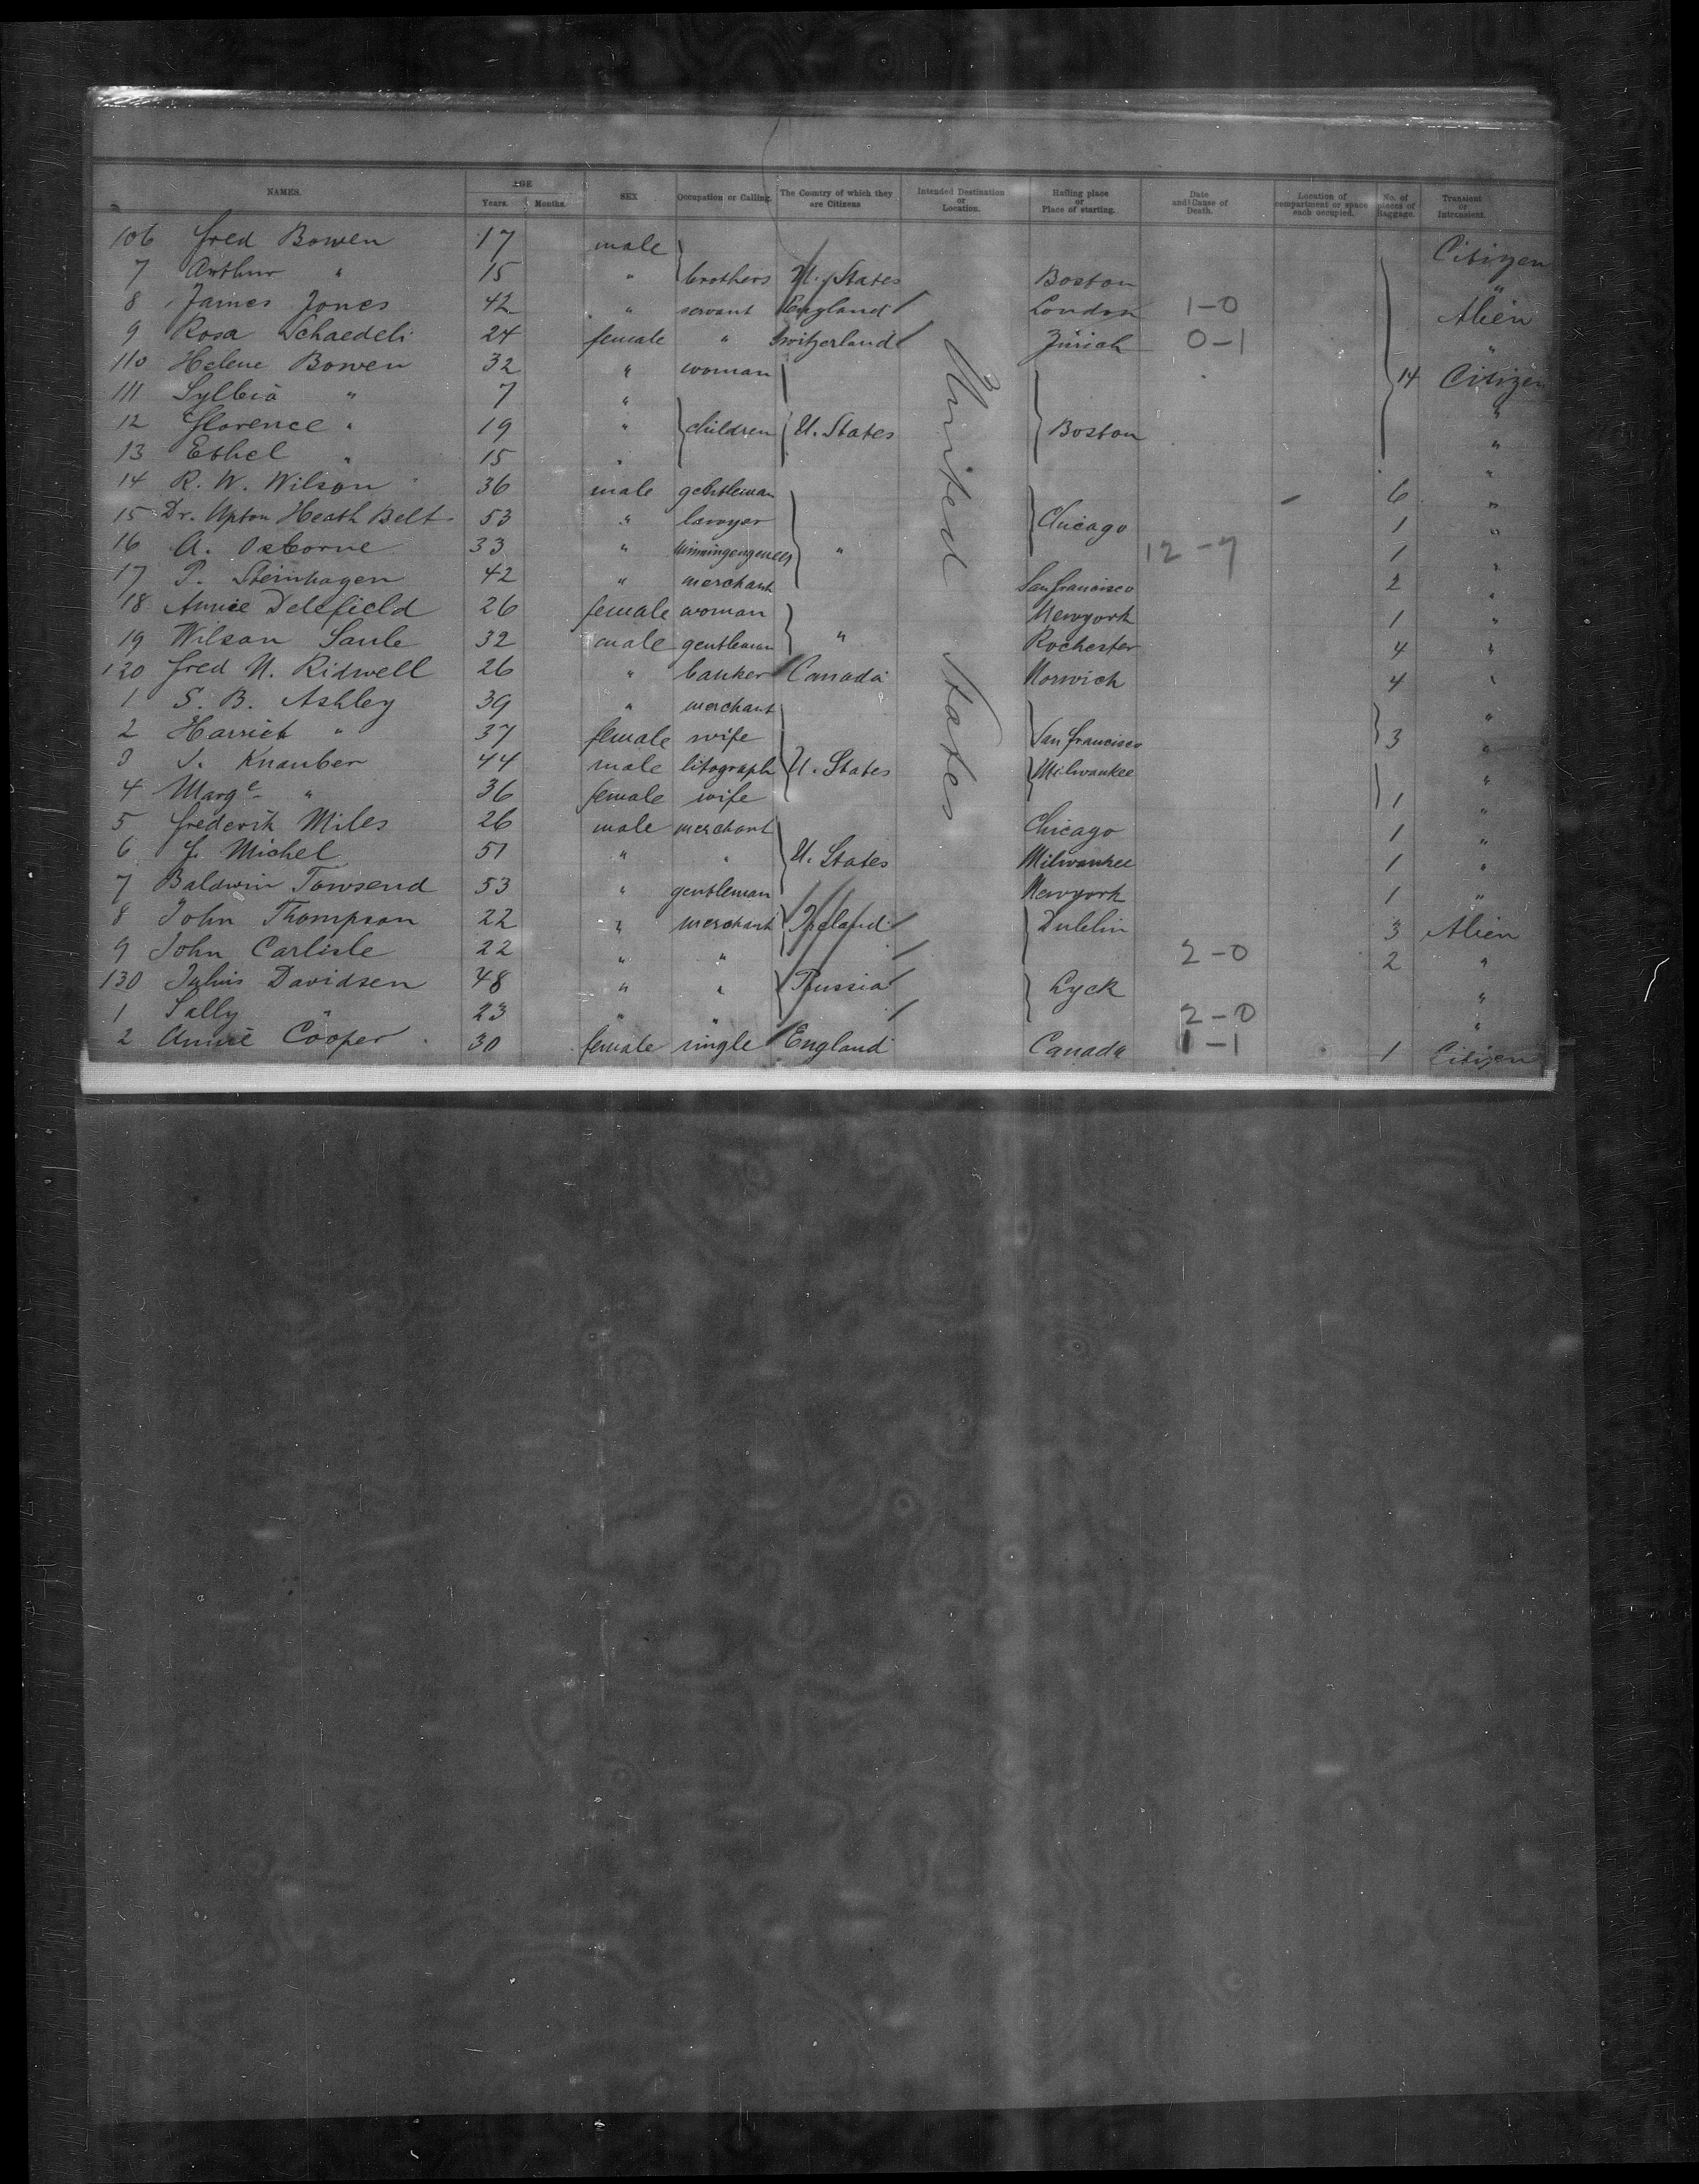 NAMES. AGE Years. Months. SEX Occupation or Calling. The Country of which they are Citizens Intended Destination or Location. Hailing place or Place of starting. Date and Cause of Death. Location of compartment or space each occupied. No. of pieces of Baggage. Transient or Intransient.
106 Fred Bowen 17 male Citizen
7 Arthur " 15 " brothers U. States Boston "
8 James Jones 42 " servant England London 1-0 Alien
9 Rosa Schaedeli 24 female " Switzerland Zürich 0-1 "
110 Helene Bowen 32 " woman 14 Citizen
111 Sylbia " 7 " "
12 Florence " 19 " children U. States United States Boston "
13 Ethel " 15 " "
14 R. W. Wilson 36 male gentleman 6 "
15 Dr. Upton Heath Belt 53 " lawyer Chicago 1 "
16 A. Osborne 33 " minningengeneer " 12-7 1 "
17 P. Steinhagen 42 " merchant San francisco 2 "
18 Annie Delefield 26 female woman Newyork 1 "
19 Wilson Saule 32 male gentleman " Rochester 4 "
120 Fred N. Ridwell 26 " banker Canada Norwich 4 "
1 S. B. Ashley 39 " merchant "
2 Harriet " 37 female wife San francisco 3 "
3 J. Knauber 44 male litograph U. States Milwaukee "
4 Marg e " 36 female wife 1 "
5 Frederik Miles 26 male merchant Chicago 1 "
6 J. Michel 51 " " U. States Milwaukee 1 "
7 Baldwin Towsend 53 " gentleman Newyork 1 "
8 John Thompson 22 " merchant Ireland Dublin 3 Alien
9 John Carlisle 22 " " 2-0 2 "
130 Julius Davidsen 48 " " Russia Lyck "
1 Sally " 23 " " 2-0 "
2 Annie Cooper 30 female single England Canada 1-1 1 Citizen